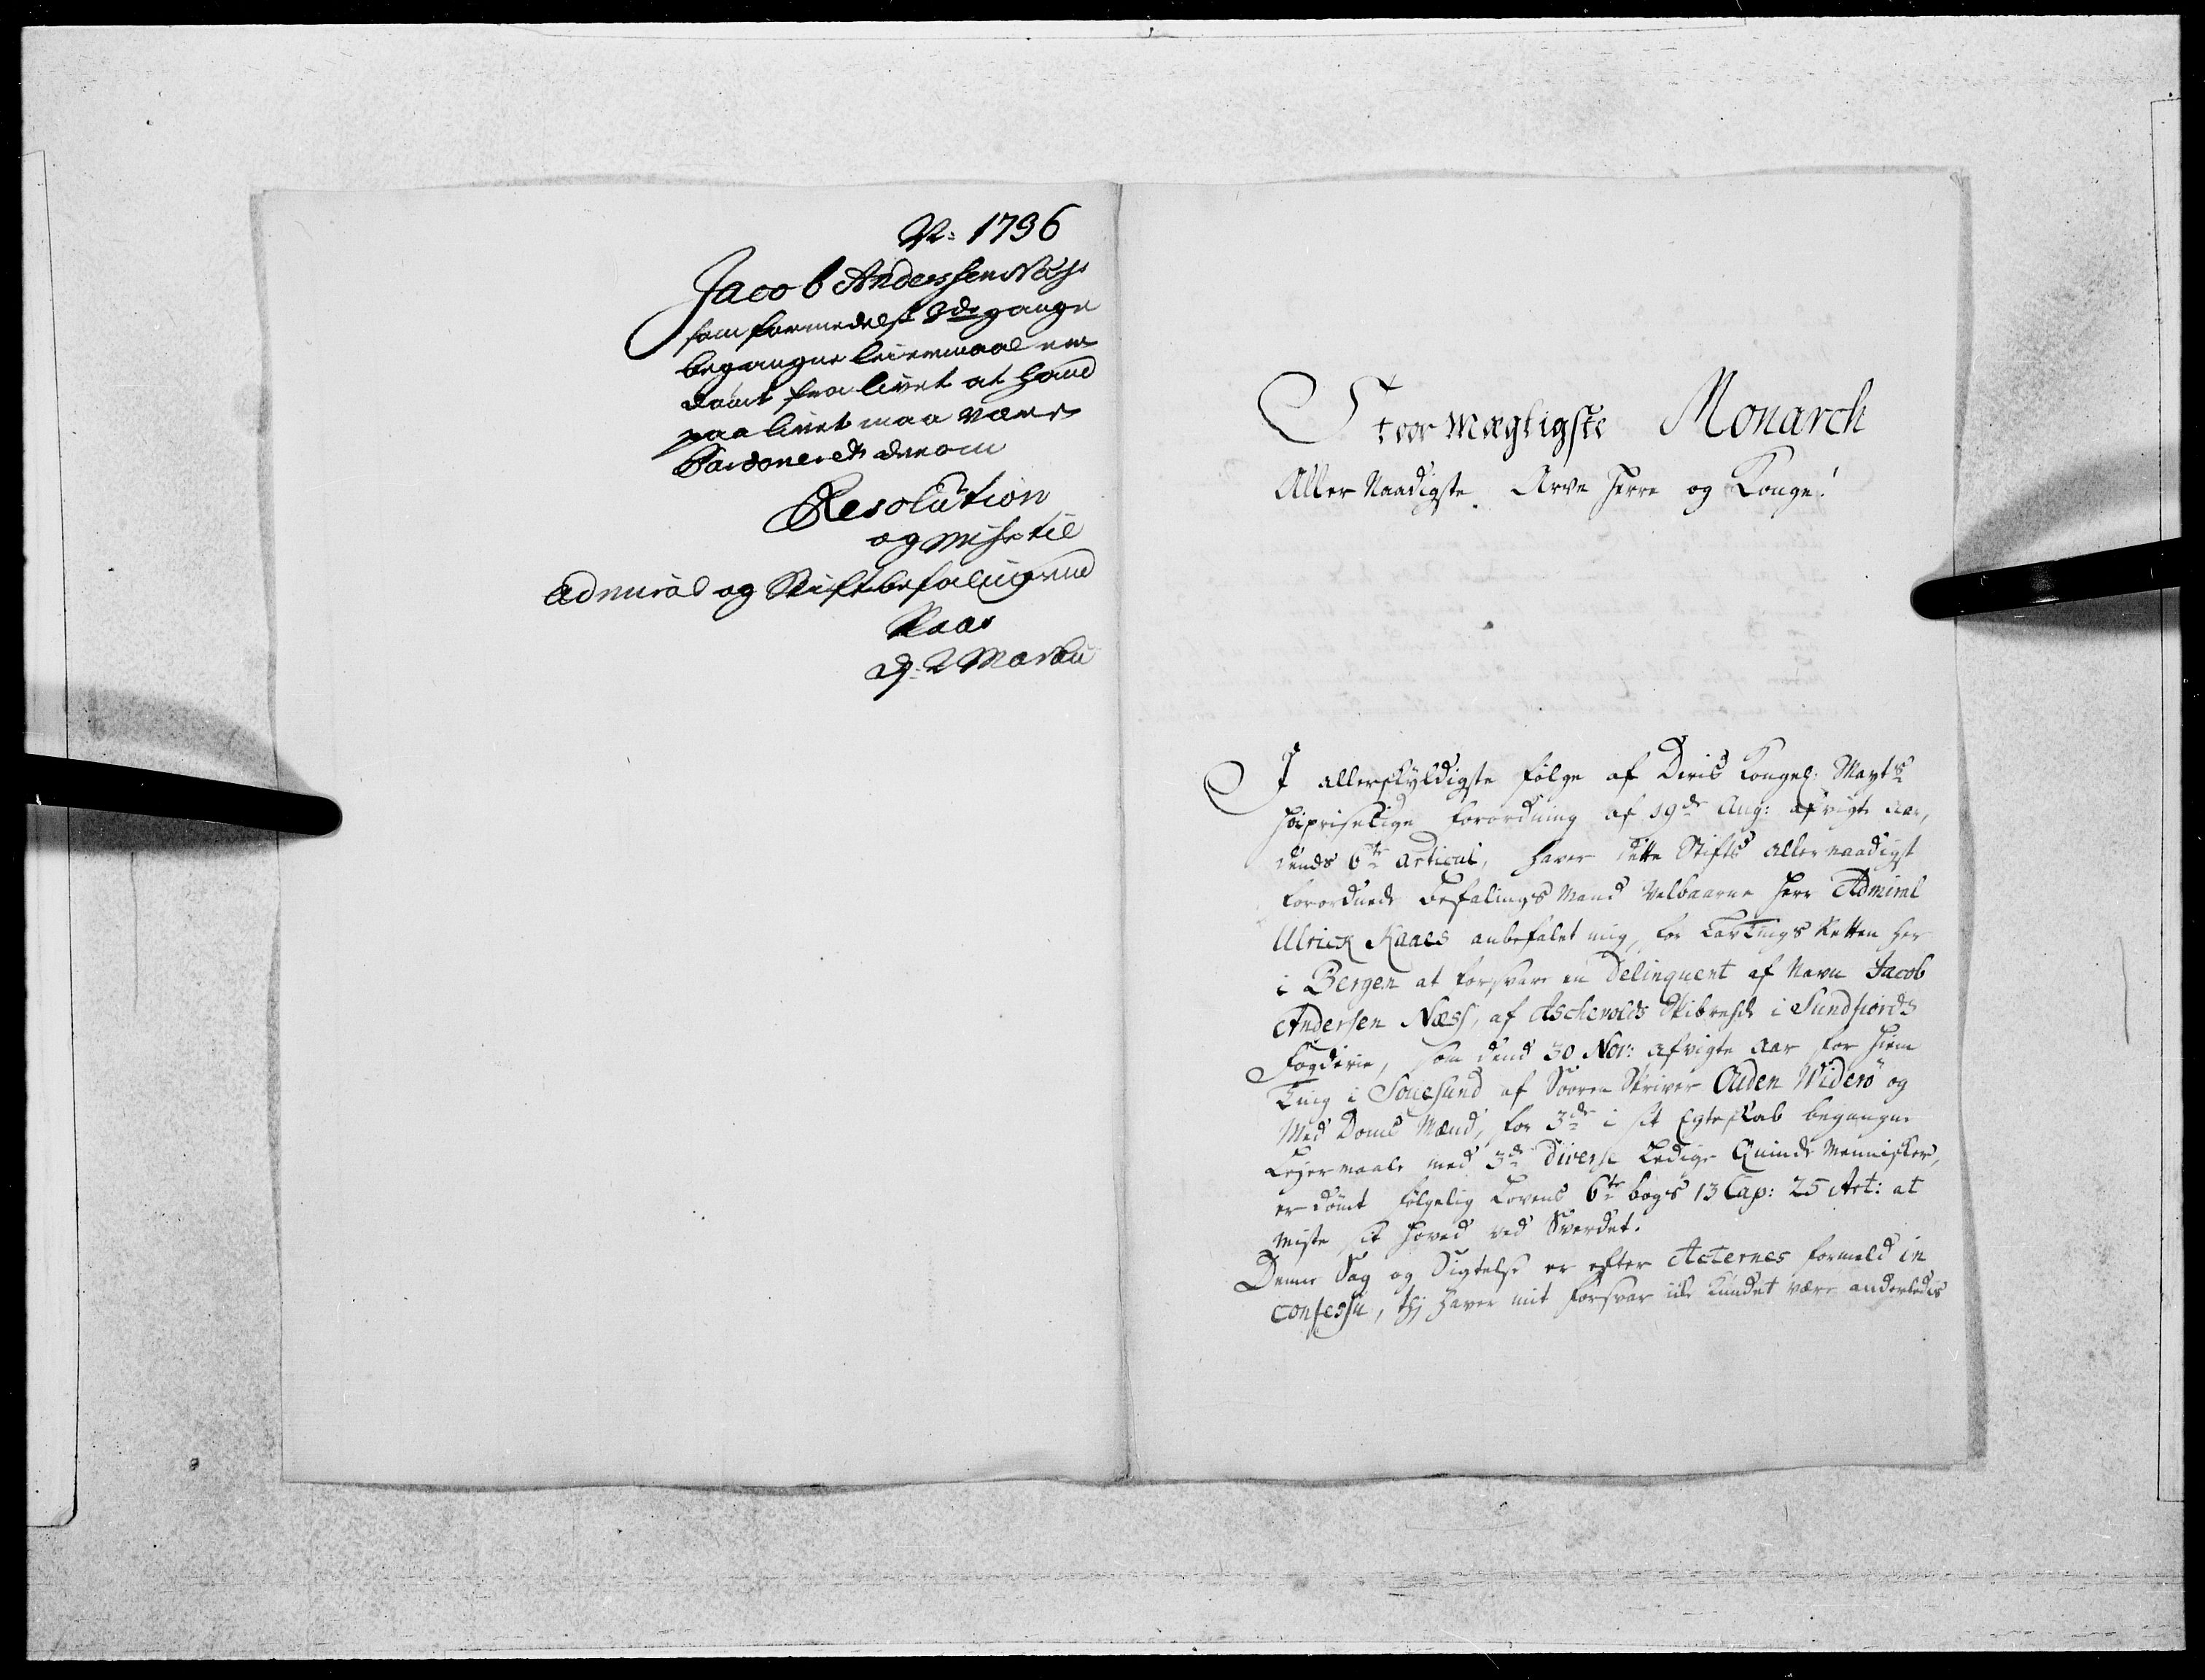 N: 1736
Jacob Anderssen Næss
som formedelst 3de gange
begangne leiermaal er
dømt fra livet at hand
paa livet maa være
Pardoneret derom
Resolution
og miss til
Admiral og Stiftbefalingsmd
Kaas
d: 2 Martii
Stoor Mægtigste Monarch
Aller Naadigste Arve Herre og Konge!
I allerskyldigste følge af Deris Kongel: Mayts
høipriselige forordning af 19de Aug: afvigte aar,
dends 6te articul, haver dette Stifts allernaadigst
forordnede Befalings Mand Velbaarne Herr Admiral
Ulrick Kaaes anbefalet mig, for LavTings Retten her
i Bergen at forsvare en Delinquent af Navn Jacob
Andersen Næss, af Aschevolds Skibrede i Sundfiords
Fogderie, som dend 30 Nov: afvigte aar for hiem
Ting i Souesund af Sooren Skriver Ouden Widerö og
Med Doms Mænd, for 3de i sit Egteskab begangne
Lejermaale med 3de diverse Ledige Quinde Mennisker,
er dømt følgelig Lovens 6te bogs 13 Cap: 25 Art: at
miste sit hoved ved Sverdet.
Denne Sag og Sigtelse er efter Acternes formeld in
confessu, thj haver mit forsvar ide kundet være anderledis